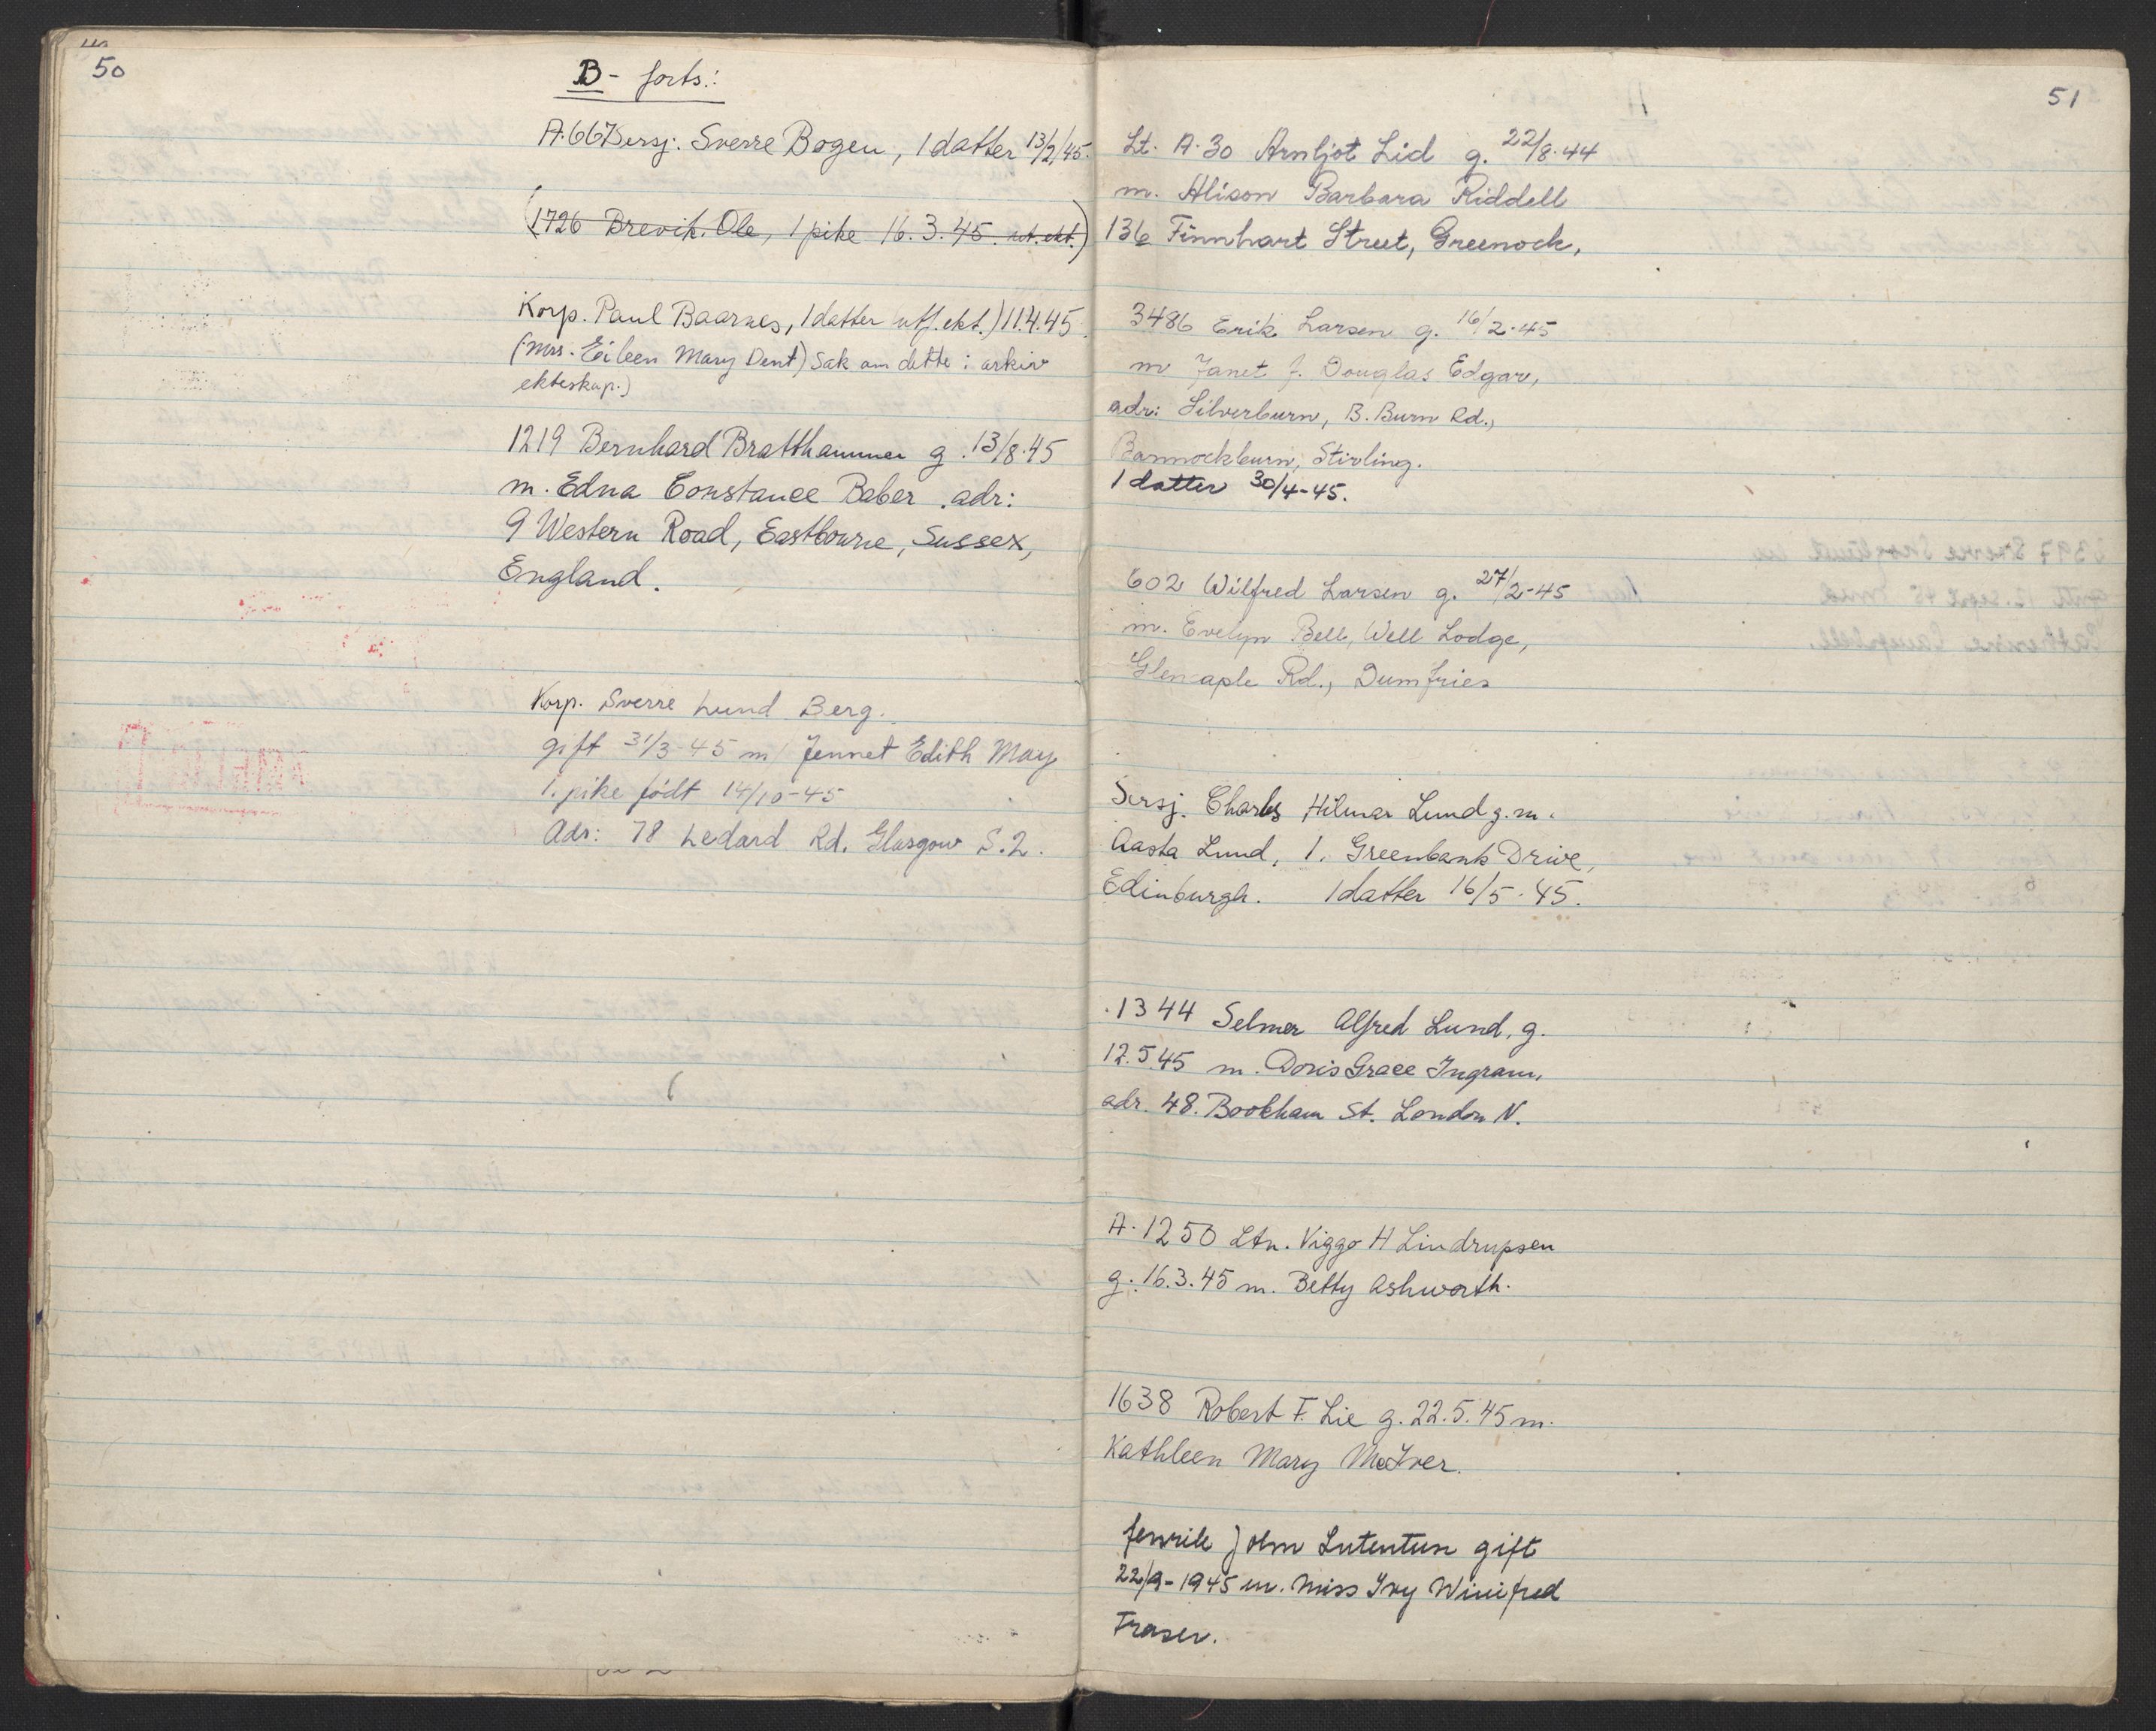 50
B - forts.:
A.667 Sersj. Sverre Bogen, 1 datter 13/2/45.
(1726 Brevik. Ole, 1 pike 16.3.45. ut. ekt.)
Korp. Paul Baarnes, 1 datter utf. ekt.) 11.4.45
(Mrs. Eileen Mary Dent) Sak om dette i arkiv
ekteskap.)
1219 Bernhard Bratthammer g. 13/8.45
m. Edna Constance Baber . adr:
9 Western Road, Eastbourne, Sussex,
England.
Korp. Sverre Lund Berg.
gift 31/3-45 m/ Jennet Edith May
1. pike födt 14/10-45
Adr: 78 Ledard Rd. Glasgow S.2.
51
Lt. A.30 Arnljot Lid g. 22/8.44
m. Alison Barbara Riddell
136 Finnhart Street, Greenock,
3486 Erik Larsen g. 16/2.45
m Janet J. Douglas Edgar,
adr: Silverburn, B. Burn Rd.,
Bannockburn, Stirling.
1 datter 30/4-45.
602 Wilfred Larsen g. 27/2-45
m. Evelyn Bell, Well Lodge,
Glencaple Rd., Dumfries
Sersj. Charles Hilmar Lund g.m.
Aasta Lund, 1. Greenbank Drive,
Edinburgh. 1 datter 16/5.45.
1344 Selmer Alfred Lund, g.
12.5.45 m. Doris Grace Ingram,
adr. 48. Bookham St. London N.
A.1250 Ltn. Viggo H Lindrupsen
g. 16.3.45 m. Betty Ashworth.
1638 Robert F. Lie g. 22.5.45 m.
Kathleen Mary McIver.
fenrik John Lutentun gift
22/9-1945 m. Miss Ivy Winifred
Fraser.